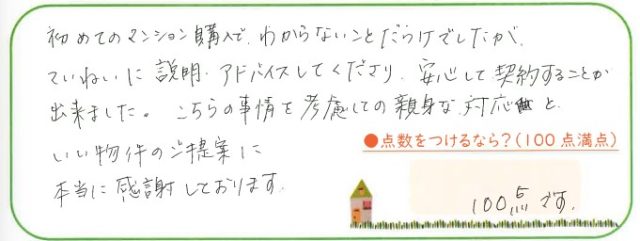 初めてのマンション購入で、わからないことだらけでしたが、
ていねいに説明、アドバイスしてくださり、安心して契約することが
出来ました。こちらの事情を考慮しての親身な対応と、
いい物件のご提案に
本当に感謝しております。
●点数をつけるなら?(100点満点)
100点です。